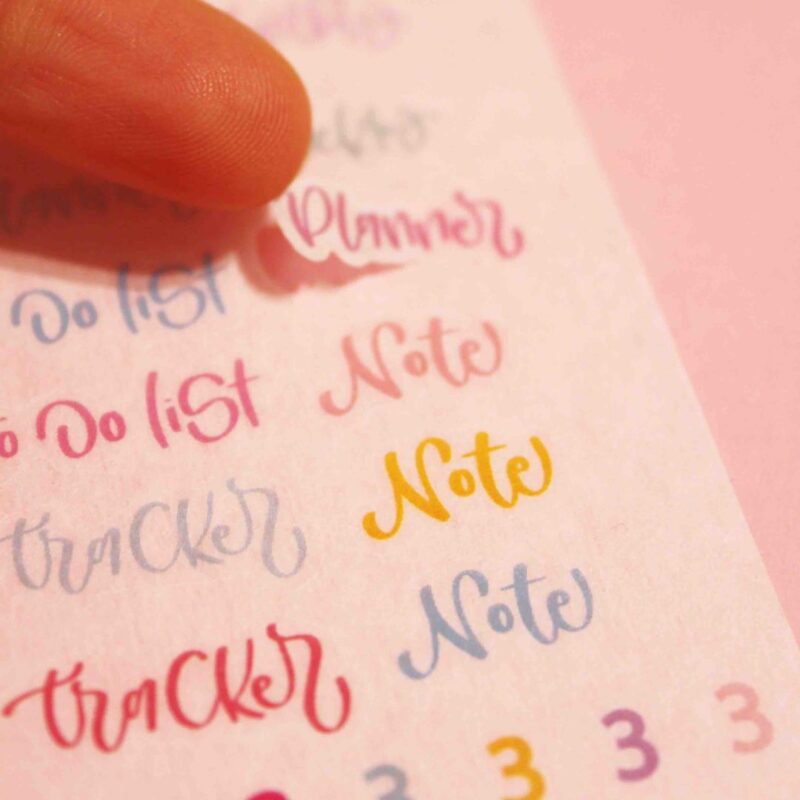 Planner
Do list
to Do list Note
tracker Note
tracker Note
3 3 3 3